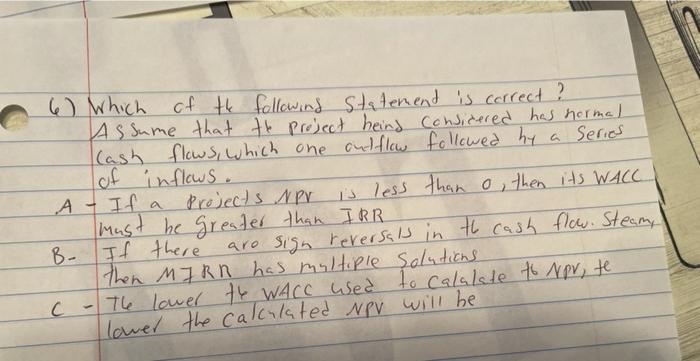 6) Which of the following Statement is correct?
Assume that the project being considered has normal
Cash flows, which one outflow followed by a Series
of inflows.
A - If a projects NPV is less than 0, then its WACC
must be greater than IRR
B- If there are sign reversals in the cash flow. Steam,
then MIRR has multiple Solutions
C - The lower the WACC used to calalate the NPV, te
lower the calculated NPV will be